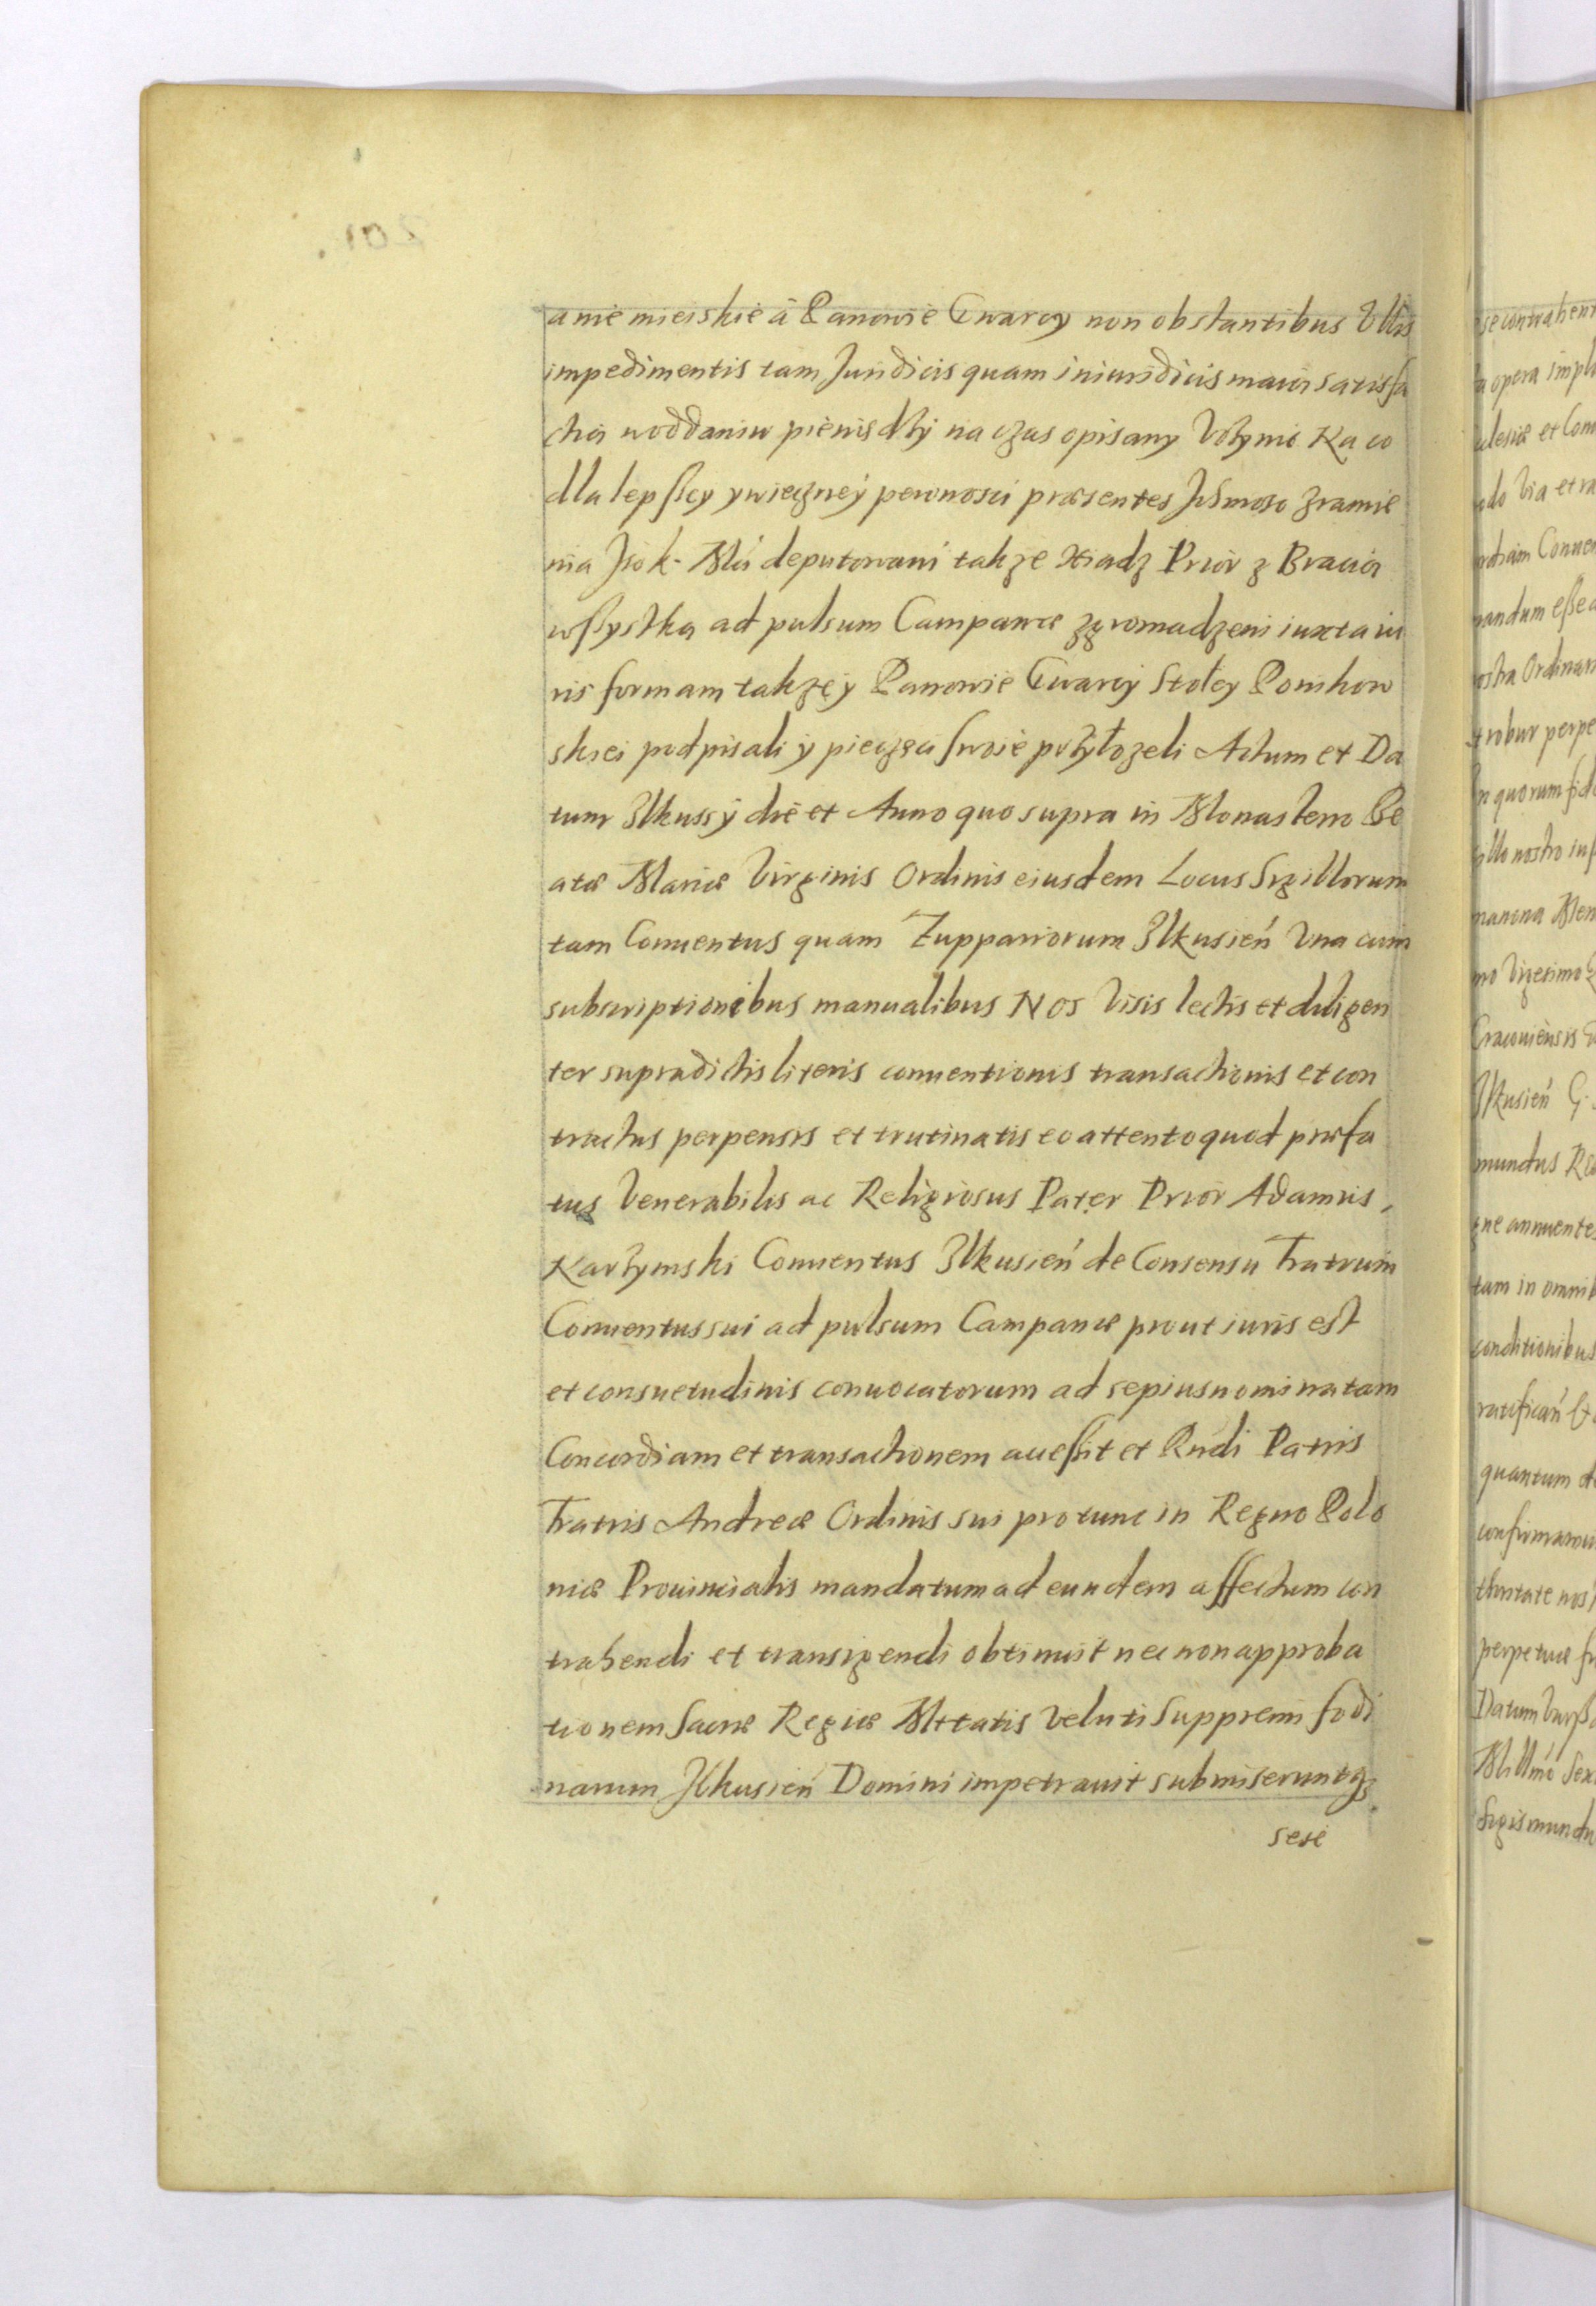 a nie mieiskie á Panowie Gwarcy non obstantibus Vllis
impedimentis tam Juridicis quam iniuridicis maią satisfa
ctią w oddaniu pieniędzy na czas opisany Vczynić Na co
dla lepszey y wieczney pewnosci præsentes Ich moso z ramie
nia Jeo k. Mći deputowani takze Xiadz Prior z Bracią
wszystką ad pulsum Campanæ zgromadzeni iuxta iu
ris formam takze y Panowie Gwarcy Stołey Ponikow
skiei podpisali ÿ pieczęci swoie przyłozeli Actum et Da
tum Ilkussÿ die et Anno quo supra in Monasterio Be
atæ Mariæ Virginis Ordinis eiusdem Locus Sigillorum
tam Conuentus quam Zuppariorum Ilkusień Vna cum
subscriptionibus manualibus Nos Visis lectis et diligen
ter supradictis literis conuentionis transactionis et con
tractus perpensis et trutinatis eo attento quod præfa
tus Venerabilis ac Religiosus Pater Prior Adamus
Karzymski Conuentus Ilkusień de Consensu Fratrum
Conuentus sui ad pulsum Campanæ prout iuris est
et consuetudinis conuocatorum ad sepius nominatam
Concordiam et transactionem accessit et Rndi Patris
Fratris Andreæ Ordinis sui pro tunc in Regno Polo
niæ Prouincialis mandatum ad eundem affectum con
trahendi et transigendi obtinuit nec non approba
tionem Sacræ Regiæ Mttatis Veluti Suppremi fodi
narum Ilkusień Domini impetrauit submiseruntq3
sese